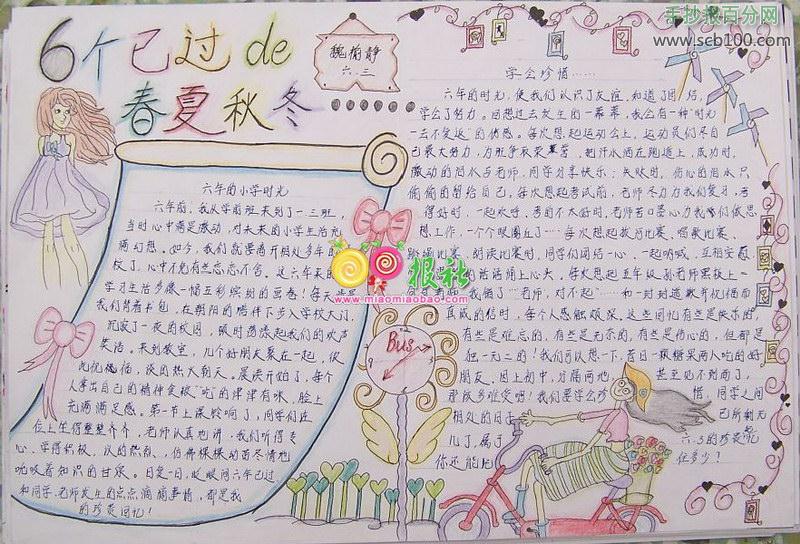 手抄报百分网
www.scb100.com
6个已过de
春夏秋冬
六.三
学会珍惜……
六年的时光，使我们认识了友谊，知道了团结，
学会了努力。回想过去发生的一幕幕，我会有一种"时光
一去不复返"的伤感。每次想起运动会上，运动员们尽自
己最大努力，为班争取荣誉，把汗水洒在跑道上，成功时，
激动的泪水与老师、同学分享快乐；失败时，伤心的泪水只
偷偷的留给自己。每次想起考试前，老师尽力为我们复习，考
得好时，一起欢呼，考的不太好时，老师苦口婆心为我们做思
想工作，一个个暖阳近了……每次想起拔河比赛、唱歌比赛、
朗诵比赛时，同学们团结一心，一起呐喊，互相安慰，
话语涌上心头。每次想起五年级孙老师黑板上一
"老师，对不起"……和一封封道歉并祝福而
真诚的信时，每个人感触颇深，这些回忆有些是快乐的，
有些是难忘的，有些是无奈的，有些是伤心的，但都是
独一无二的！我们可以想一下，昔日一颗糖果两人吃的好
朋友，因上初中，分隔两地， 甚至见不到面了，
那该多难受啊！我们要学会珍 惜，同学之间
相处的日子 已所剩无
几了，属于 六.三的珍贵记忆
你还能记 住多少？
六年的小学时光
六年前，我从学前班来到了一三班，
当时心中满是激动，对未来的小学生活充
满幻想。如今，我们就要离开相处多年的
校了，心中不免有些恋恋不舍。这六年来的
学习生活多像一幅五彩缤纷的画卷！每天
我们背着书包，在朝阳的陪伴下步入学校大门，
沉寂了一夜的校园，顿时荡漾起我们的欢声
笑语。来到教室，几个好朋友聚在一起，彼
无忧无虑，谈的热火朝天。晨读开始了，每个
人拿出自己的精神食粮"吃"的津津有味，脸上
充满满足感。第一节上课铃响了，同学们在
位上坐得整整齐齐，老师认真地讲，我们听得专
心、学得积极、议的热烈，仿佛棵棵幼苗尽情地
吮吸着知识的甘泉。日复一日，眨眼间六年已过
和同学、老师发生的点点滴滴事情，都是我
的珍贵回忆！
报社
www.miaomiaobao.com
Bus